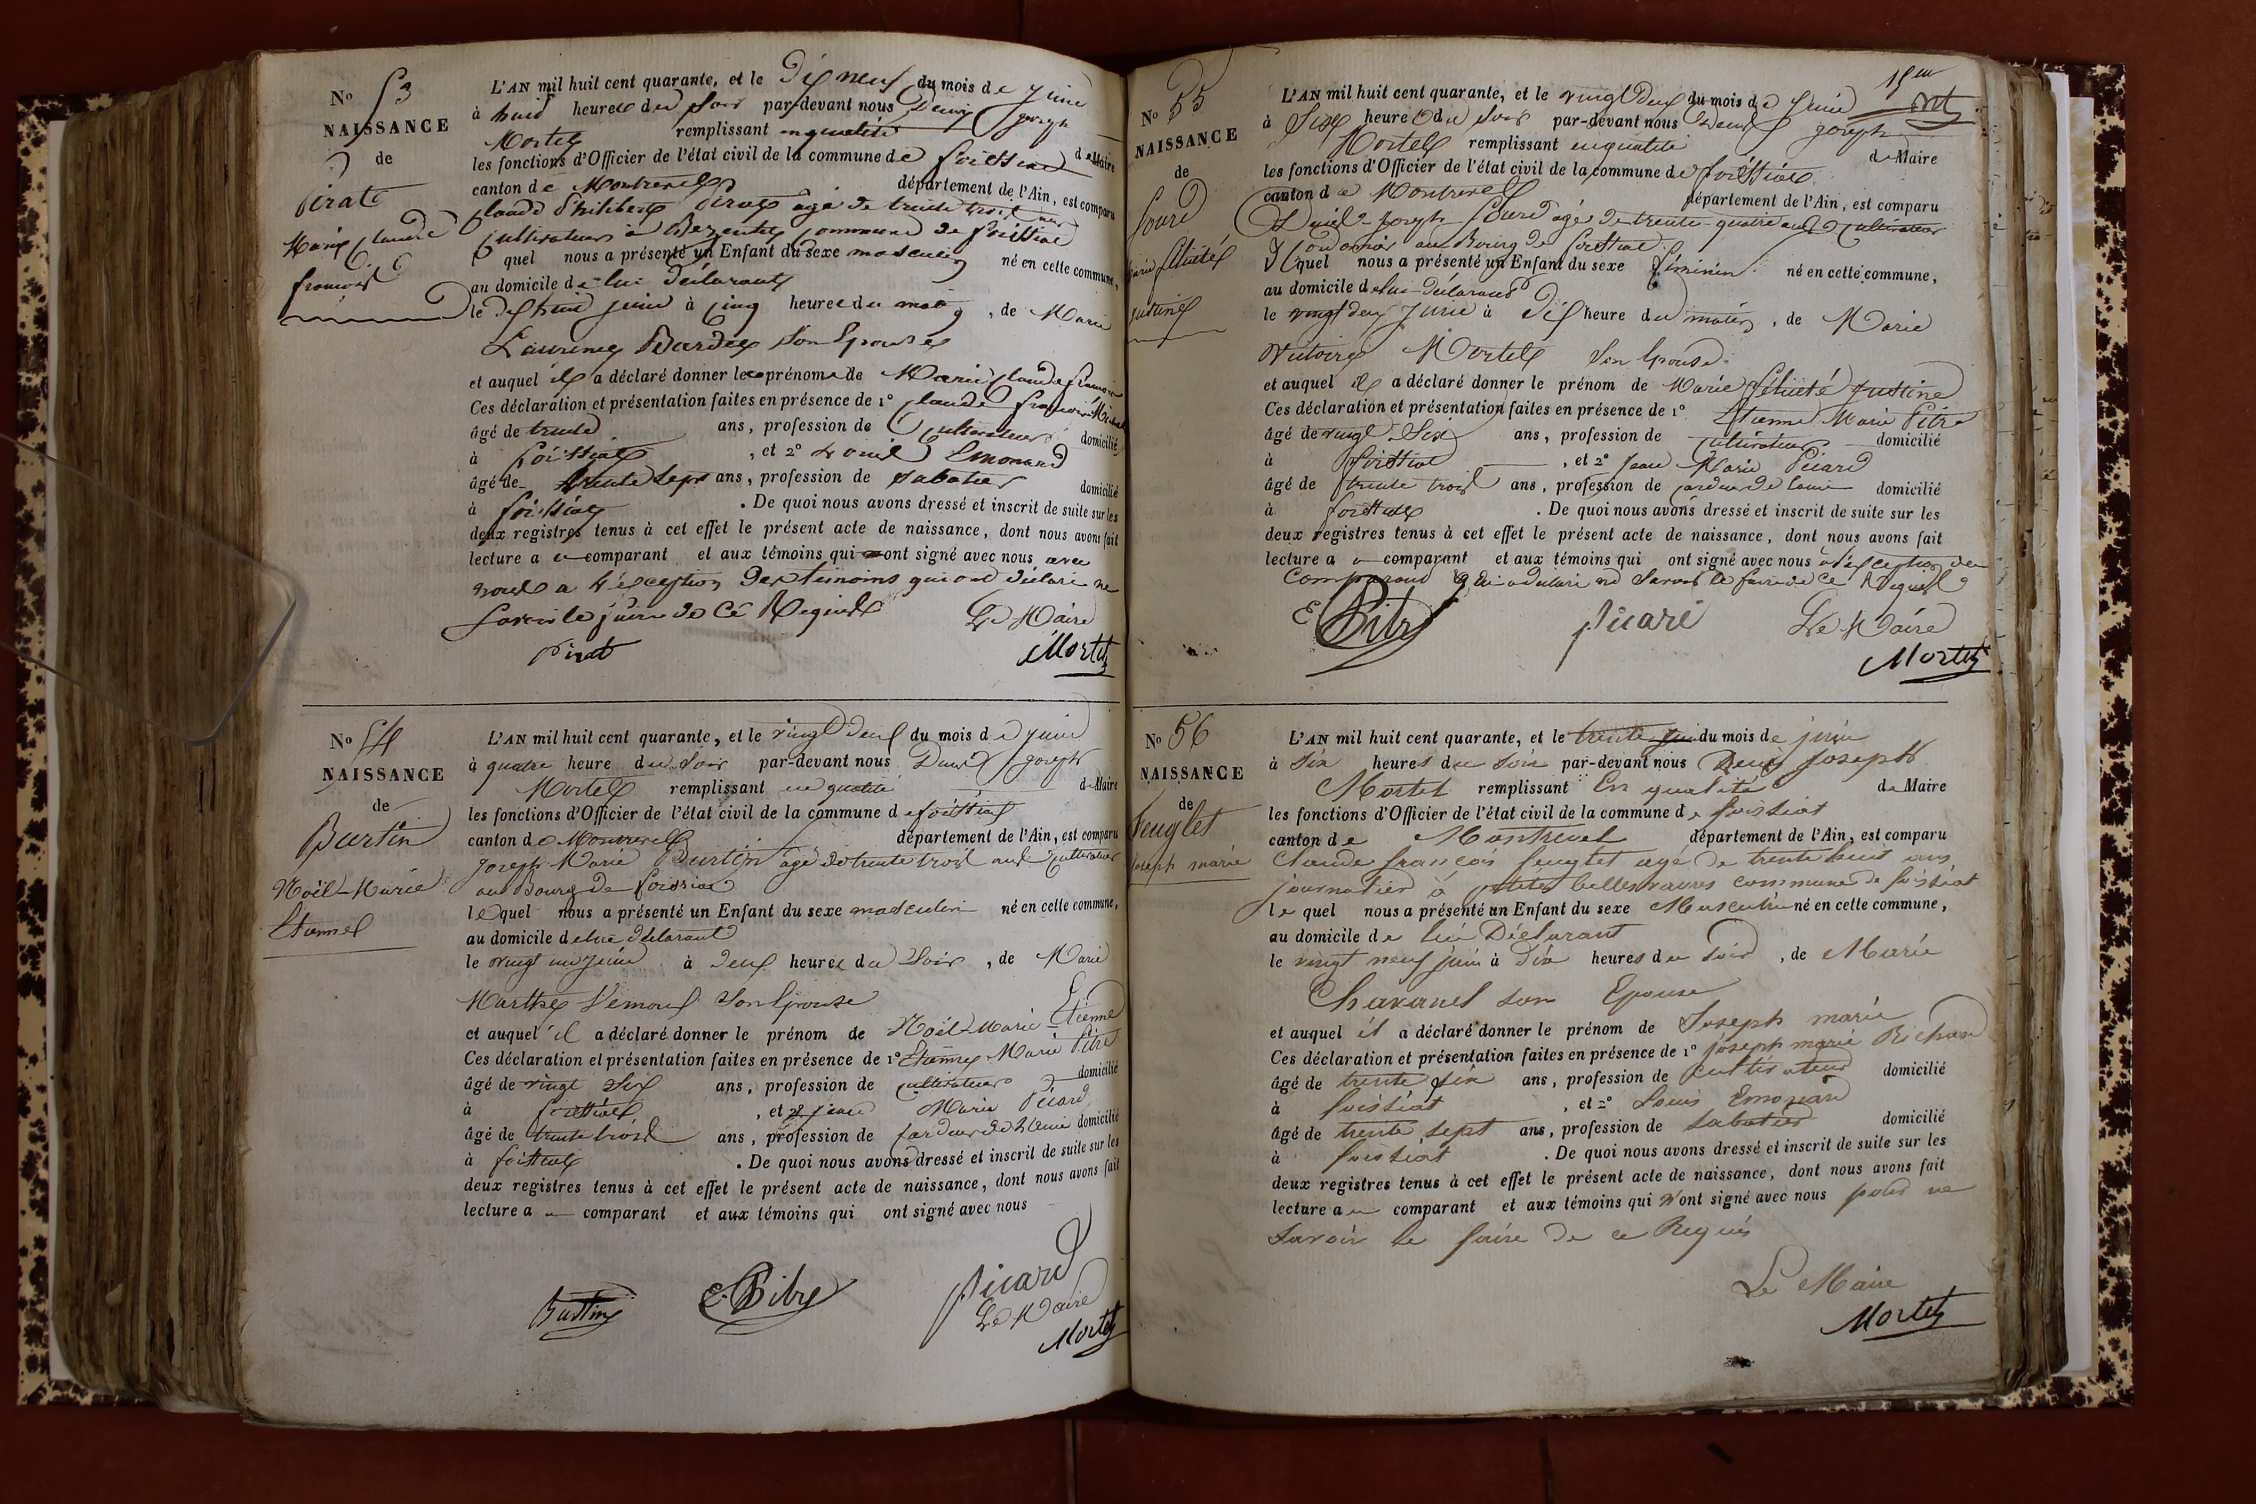 No 53
NAISSANCE
de
Pirat
Marie Claude
François
L'AN mil huit cent quarante, et le Dix neuf du mois de Juin
à huit heures du soir par-devant nous Denis Joseph
Mortel remplissant en qualité de Maire
les fonctions d'Officier de l'état civil de la commune de foissiat
canton de Montrevel département de l'Ain, est comparu
Claude Philibert Pirat agé de trente trois ans
Cultivateur à Bezentet commune de foissiat
quel nous a présenté un Enfant du sexe masculin né en cette commune,
au domicile de lui déclarant
le dix huit juin à cinq heures du matin, de Marie
Laurence Bardet son Epouse
et auquel il a déclaré donner les prénoms de Marie Claude françois
Ces déclaration et présentation faites en présence de 1° Claude françois Michel
âgé de trente ans, profession de Cultivateur domicilié
à foissiat, et 2° Louis Emonard
âgé de trente sept ans, profession de sabotier domicilié
à foissiat. De quoi nous avons dressé et inscrit de suite sur les
deux registres tenus à cet effet le présent acte de naissance, dont nous avons fait
lecture au comparant et aux témoins qui ont signé avec nous avec
nous a l'exception des temoins qui ont déclaré ne
savoir le faire de ce Requis
Le Maire
Pirat
Mortel
No 54
NAISSANCE
de
Burtin
Noël-Marie
Etienne
L'AN mil huit cent quarante, et le vingt deux du mois de juin
à quatre heure du soir par-devant nous Denis joseph
Mortel remplissant en qualité de Maire
les fonctions d'Officier de l'état civil de la commune de foissiat
canton de Montrevel département de l'Ain, est comparu
Joseph Marie Burtin agé de trente trois ans Cultivateur
au Bourg de foissiat
lequel nous a présenté un Enfant du sexe masculin né en cette commune,
au domicile de lui déclarant
le vingt un juin à deux heures du soir, de Marie
Marthe son Epouse
et auquel il a déclaré donner le prénom de Noël-Marie Etienne
Ces déclaration et présentation faites en présence de 1° Etienne Marie Pitre
âgé de vingt six ans, profession de cultivateur domicilié
à foissiat, et 2° jean Marie Picard
âgé de trente trois ans, profession de domicilié
à foissiat. De quoi nous avons dressé et inscrit de suite sur les
deux registres tenus à cet effet le présent acte de naissance, dont nous avons fait
lecture au comparant et aux témoins qui ont signé avec nous
Burtin
E. Pitre
Picard
Le Maire
Mortel
No 55
NAISSANCE
de
Marie félicité
justine
L'AN mil huit cent quarante, et le vingt deux du mois de juin
à Six heure du soir par-devant nous Denis joseph
Mortel remplissant en qualité de Maire
les fonctions d'Officier de l'état civil de la commune de foissiat
canton de Montrevel département de l'Ain, est comparu
joseph agé de trente-quatre ans Cultivateur
au Bourg de foissiat
quel nous a présenté un Enfant du sexe féminin né en cette commune,
au domicile de lui déclarant
le vingt deux juin à Dix heure du matin, de Marie
Victoire Mortel son Epouse
et auquel il a déclaré donner le prénom de Marie félicité justine
Ces déclaration et présentation faites en présence de 1° Etienne Marie Pitre
âgé de vingt Six ans, profession de cultivateur domicilié
à foissiat, et 2° jean Marie Picard
âgé de trente trois ans, profession de domicilié
à foissiat. De quoi nous avons dressé et inscrit de suite sur les
deux registres tenus à cet effet le présent acte de naissance, dont nous avons fait
lecture au comparant et aux témoins qui ont signé avec nous à l'exception du
comparant qui a déclaré ne savoir le faire de ce Requis
E. Pitre
Picard
Le Maire
Mortel
No 56
NAISSANCE
de
Feuglet
joseph marie
L'AN mil huit cent quarante, et le trente juin du mois de juin
à six heures du soir par-devant nous Denis Joseph
Mortel remplissant En qualité de Maire
les fonctions d'Officier de l'état civil de la commune de foissiat
canton de Montrevel département de l'Ain, est comparu
Claude françois feuglet agé de trente huit ans
journalier à petites bellesvavres commune de foissiat
le quel nous a présenté un Enfant du sexe Masculin né en cette commune,
au domicile de lui Déclarant
le vingt neuf juin à dix heures du soir, de Marie
Chavanel son Epouse
et auquel il a déclaré donner le prénom de Joseph marie
Ces déclaration et présentation faites en présence de 1° joseph marie Richard
âgé de trente six ans, profession de cultivateur domicilié
à foissiat, et 2° Louis Emonard
âgé de trente sept ans, profession de sabotier domicilié
à foissiat. De quoi nous avons dressé et inscrit de suite sur les
deux registres tenus à cet effet le présent acte de naissance, dont nous avons fait
lecture au comparant et aux témoins qui n'ont signé avec nous pour ne
savoir le faire de ce Requis
Le Maire
Mortel